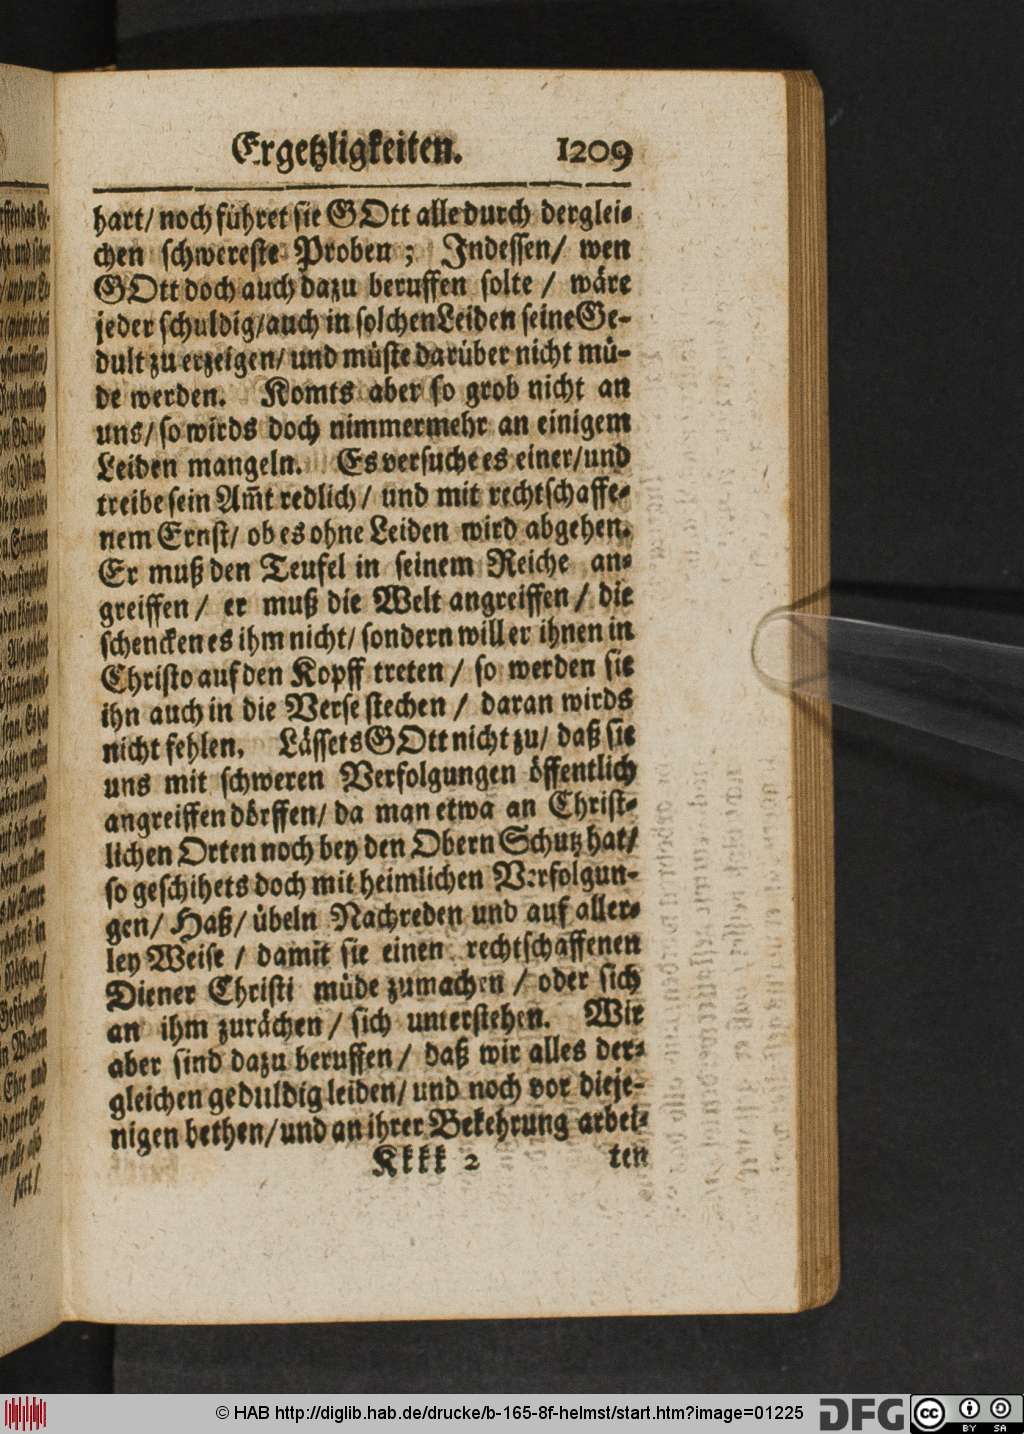 Ergetzligkeiten. 1209
hart/ noch führet sie GOtt alle durch derglei-
chen schwereste Proben; Indessen/ wen
GOtt doch auch dazu beruffen solte / wäre
jeder schuldig/auch in solchen Leiden seine Ge-
dult zu erzeigen/ und müste darüber nicht mü-
de werden. Komts aber so grob nicht an
uns/ so wirds doch nimmermehr an einigem
Leiden mangeln. Es versuche es einer/und
treibe sein Am̃t redlich/ und mit rechtschaffe-
nem Ernst/ ob es ohne Leiden wird abgehen.
Er muß den Teufel in seinem Reiche an-
greiffen / er muß die Welt angreiffen / die
schencken es ihm nicht/ sondern will er ihnen in
Christo auf den Kopff treten / so werden sie
ihn auch in die Verse stechen / daran wirds
nicht fehlen. Lässets GOtt nicht zu/ daß sie
uns mit schweren Verfolgungen öffentlich
angreiffen dörffen/ da man etwa an Christ-
lichen Orten noch bey den Obern Schutz hat/
so geschihets doch mit heimlichen Verfolgun-
gen/ Haß/ übeln Nachreden und auf aller-
ley Weise / damit sie einen rechtschaffenen
Diener Christi müde zumachen / oder sich
an ihm zurächen / sich unterstehen. Wir
aber sind dazu beruffen / daß wir alles der-
gleichen geduldig leiden/ und noch vor dieje-
nigen bethen/und an ihrer Bekehrung arbei-
Kkkk 2 ten
© HAB http://diglib.hab.de/drucke/b-165-8f-helmst/start.htm?image=01225 DFG cc BY SA